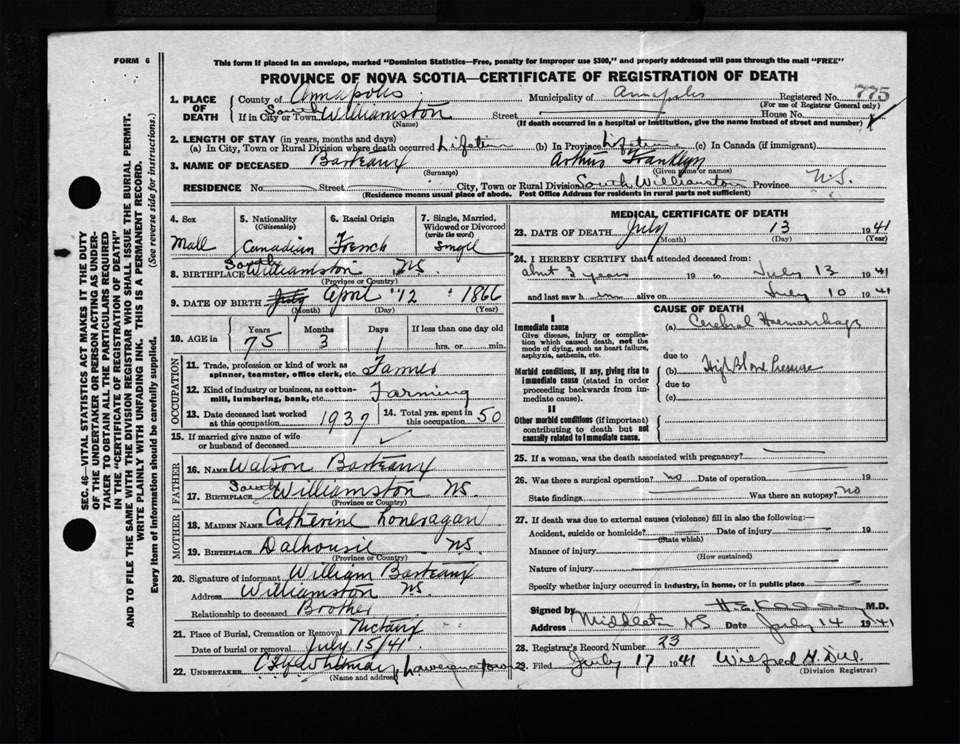 FORM 6
This form if placed in an envelope, marked "Dominion Statistics—Free, penalty for improper use $300," and properly addressed will pass through the mail "FREE"
PROVINCE OF NOVA SCOTIA—CERTIFICATE OF REGISTRATION OF DEATH
1. PLACE OF DEATH
County of Annapolis Municipality of Annapolis Registered No. 775
(For use of Registrar General only)
If in City or Town South Williamston Street House No.
(Name) (If death occurred in a hospital or institution, give the name instead of street and number)
2. LENGTH OF STAY (in years, months and days)
(a) In City, Town or Rural Division where death occurred Lifetime (b) In Province Lifetime (c) In Canada (if immigrant)
3. NAME OF DECEASED Barteaux Arthur Franklyn
(Surname) (Given name or names)
RESIDENCE No. Street City, Town or Rural Division South Williamston Province N.S.
(Residence means usual place of abode. Post Office Address for residents in rural parts not sufficient)
4. Sex
Male
5. Nationality
(Citizenship)
Canadian
6. Racial Origin
French
7. Single, Married, Widowed or Divorced
(write the word)
Single
8. BIRTHPLACE South Williamston N.S.
(Province or Country)
9. DATE OF BIRTH July April 12 1866
(Month) (Day) (Year)
10. AGE in
Years Months Days If less than one day old
75 3 1 hrs. or min.
OCCUPATION
11. Trade, profession or kind of work as
spinner, teamster, office clerk, etc. Farmer
12. Kind of industry or business, as cotton-
mill, lumbering, bank, etc. Farming
13. Date deceased last worked
at this occupation 1937
14. Total yrs. spent in
this occupation 50
15. If married give name of wife
or husband of deceased
FATHER
16. NAME Watson Barteaux
17. BIRTHPLACE South Williamston NS.
(Province or Country)
MOTHER
18. MAIDEN NAME Catherine Loneragan
19. BIRTHPLACE Dalhousie NS.
(Province or Country)
20. Signature of informant William Barteaux
Address Williamston NS.
Relationship to deceased Brother
21. Place of Burial, Cremation or Removal Nictaux
Date of burial or removal July 15/41
22. UNDERTAKER Whitman Lawrencetown
(Name and address)
MEDICAL CERTIFICATE OF DEATH
23. DATE OF DEATH July 13 1941
(Month) (Day) (Year)
24. I HEREBY CERTIFY that I attended deceased from:
about 3 years 19 to July 13 1941
and last saw him alive on July 10 1941
CAUSE OF DEATH
I
Immediate cause
Give disease, injury or complication which caused death, not the mode of dying, such as heart failure, asphyxia, asthenia, etc.
(a) Cerebral Haemorrhage
due to
Morbid conditions, if any, giving rise to immediate cause (stated in order proceeding backwards from immediate cause).
(b) High Blood Pressure
due to
(c)
II
Other morbid conditions (if important) contributing to death but not causally related to immediate cause.
25. If a woman, was the death associated with pregnancy?
26. Was there a surgical operation? no Date of operation 19
State findings Was there an autopsy? no
27. If death was due to external causes (violence) fill in also the following:—
Accident, suicide or homicide? Date of injury 19
(State which)
Manner of injury
(How sustained)
Nature of injury
Specify whether injury occurred in industry, in home, or in public place
Signed by M.D.
Address Middleton NS Date July 14 1941
28. Registrar's Record Number 23
29. Filed July 17 1941 Wilfred H.
(Division Registrar)
SEC. 46—VITAL STATISTICS ACT MAKES IT THE DUTY
OF THE UNDERTAKER OR PERSON ACTING AS UNDER-
TAKER TO OBTAIN ALL THE PARTICULARS REQUIRED
IN THE "CERTIFICATE OF REGISTRATION OF DEATH"
AND TO FILE THE SAME WITH THE DIVISION REGISTRAR WHO SHALL ISSUE THE BURIAL PERMIT.
WRITE PLAINLY WITH UNFADING INK. THIS IS A PERMANENT RECORD.
Every item of information should be carefully supplied. (See reverse side for instructions.)